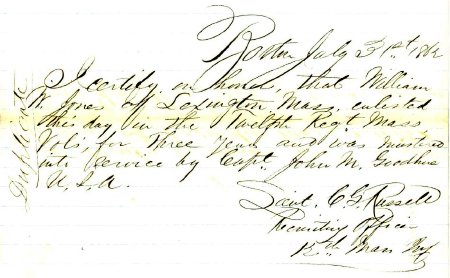 Boston July 21st 1862
I certify, on honor, that William
W. Jones of Lexington, Mass. enlisted
this day in the Twelfth Regt. Mass.
Vols., for three years and was mustered
into service by Capt. John M. Goodhue
U.S.A.
Lieut. C. G. Russell
Recruiting Officer
12th Mass Regt
Duplicate